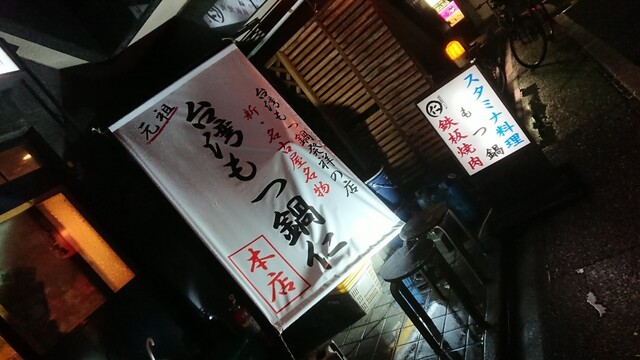 台湾もつ鍋発祥の店
新・名古屋名物
元祖
台湾もつ鍋仁
本店
スタミナ料理
もつ鍋
鉄板焼肉
仁